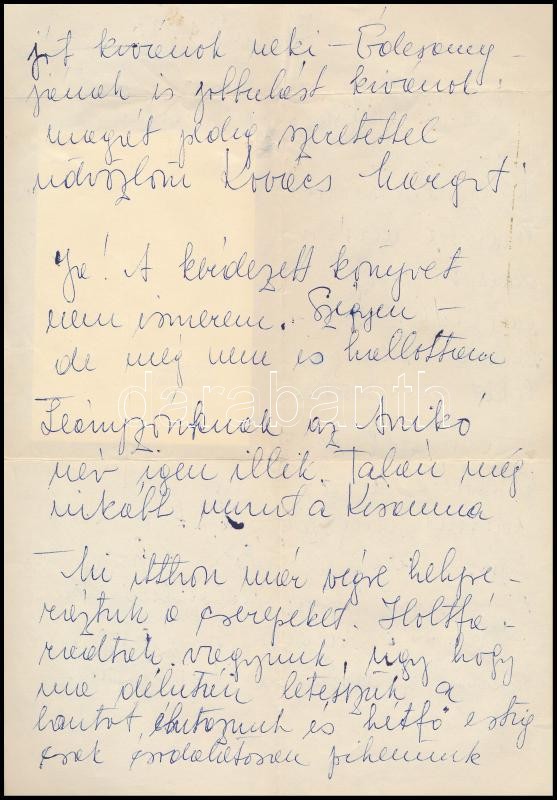 jót kivánok neki – Édesany-
jának is jobbulást kivánok
magát pedig szeretettel
üdvözlöm Kovács Margit
Ja! A kérdezett könyvet
nem ismerem. Szégyen –
de még nem is hallottam
Leányzónknak az Anikó
név igen illik. Talán még
inkább, mint a Kisanna
Mi itthon már végre helyre-
ráztuk a cserepeket. Holtfá-
radtak vagyunk, úgy hogy
ma délután letesszük a
lantot, és hétfő estig
csak csodálatosan pihenünk
darabanth